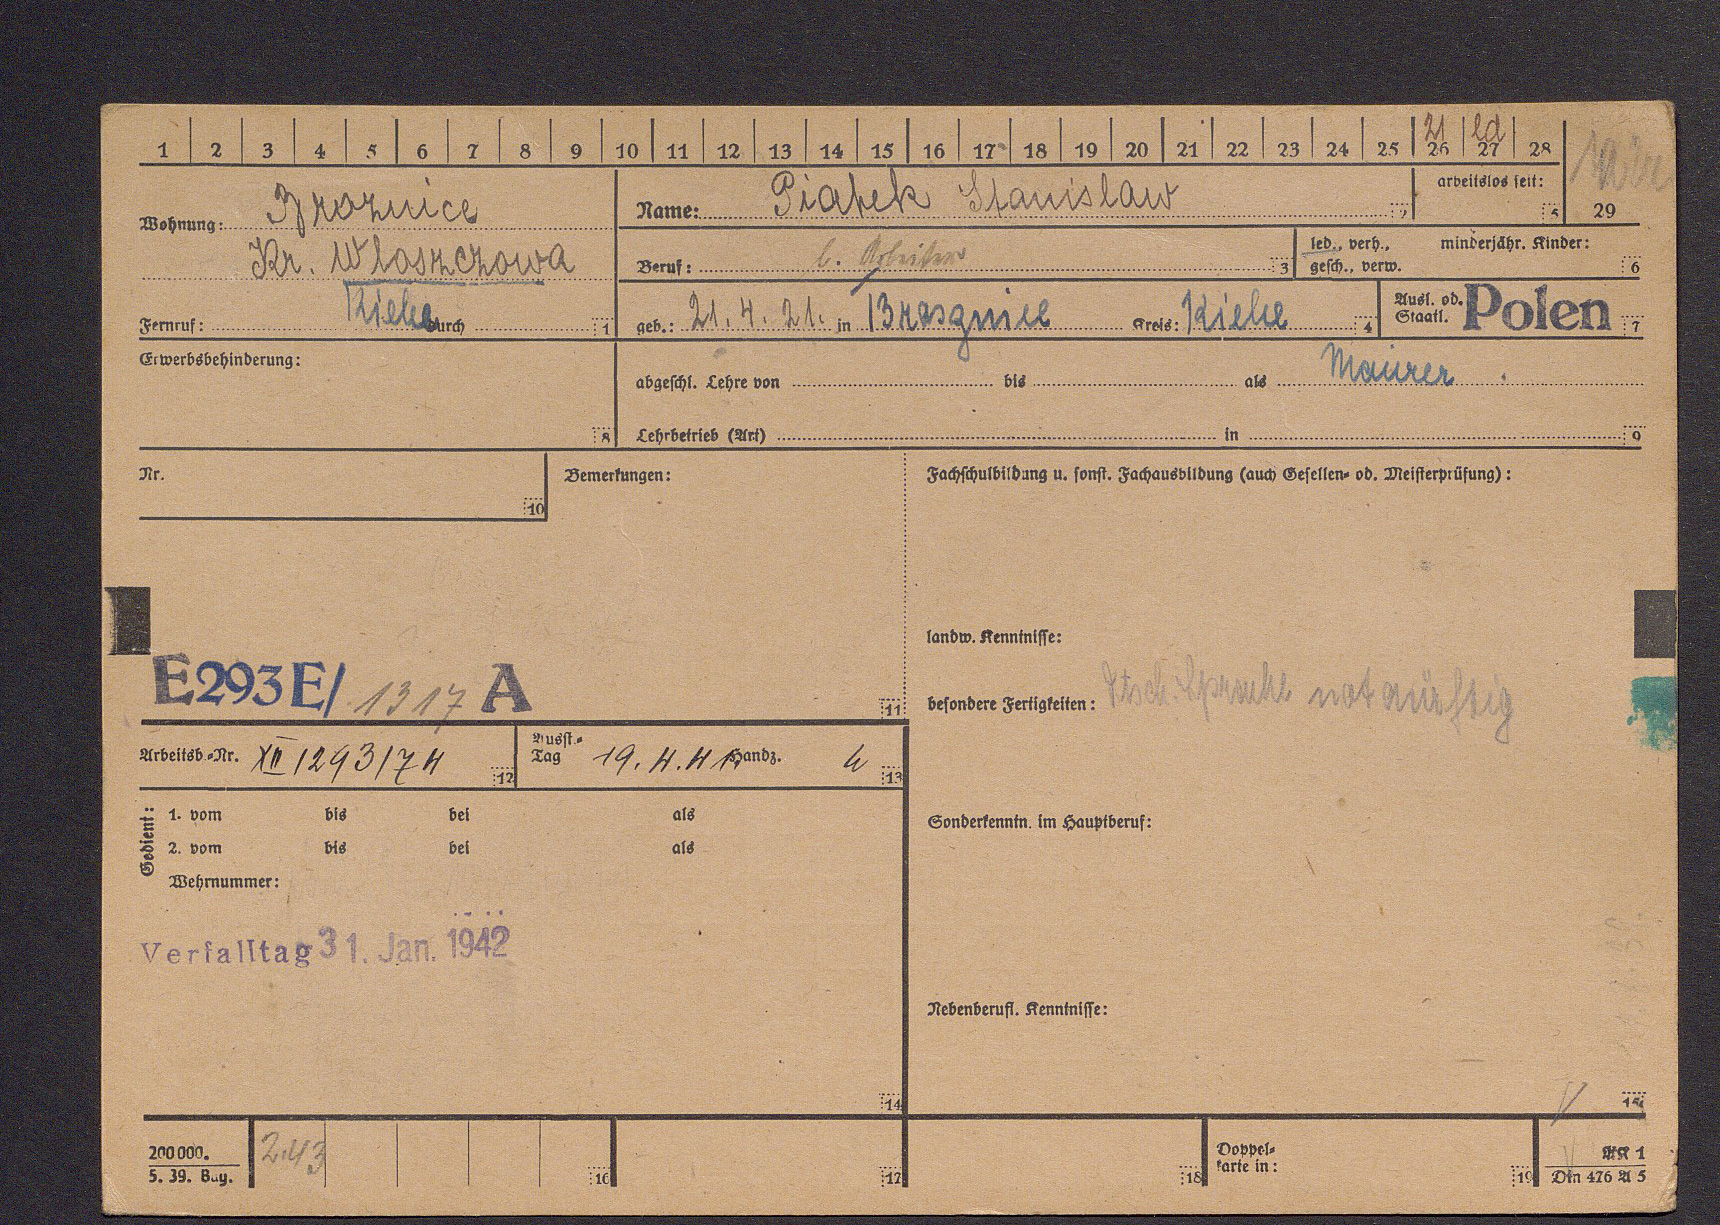 1 2 3 4 5 6 7 8 9 10 11 12 13 14 15 16 17 18 19 20 21 22 23 24 25 26 27 28
21 led
Wohnung: Broznice
Kr. Wloszczowa
Kielce
Fernruf: durch 1
Name: Piatek Stanislaw 2
arbeitslos seit: 5
29
Beruf: l. Arbeiter 3
led., verh., minderjähr. Kinder:
gesch., verw. 6
geb.: 21. 4. 21. in Kreis: Kielce 4
Ausl. od. Staatl. Polen 7
Erwerbsbehinderung:
8
abgeschl. Lehre von bis als Maurer
Lehrbetrieb (Art) in 9
Nr.
10
Bemerkungen:
E293E/ 1317 A
11
Fachschulbildung u. sonst. Fachausbildung (auch Gesellen- od. Meisterprüfung):
landw. Kenntnisse:
besondere Fertigkeiten: Dtsch. Sprache notdürftig
Sonderkenntn. im Hauptberuf:
Nebenberufl. Kenntnisse:
15
Arbeitsb.-Nr. XII 1293/74 12
Ausst.-
Tag 19. 4. 41. Handz. 13
Gedient:
1. vom bis bei als
2. vom bis bei als
Wehrnummer:
Verfalltag 31. Jan. 1942
14
200 000.
5. 39. Bay.
2.43
16
17
18
Doppel-
karte in: 19
AK 1
Din 476 A 5